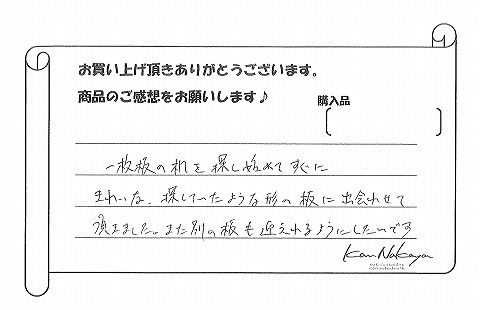 お買い上げ頂きありがとうございます。
商品のご感想をお願いします♪
購入品
一枚板の机を探し始めてすぐに
きれいな、探していたような形の板に出会わせて
頂きました。また別の板も迎えれるようにしたいです